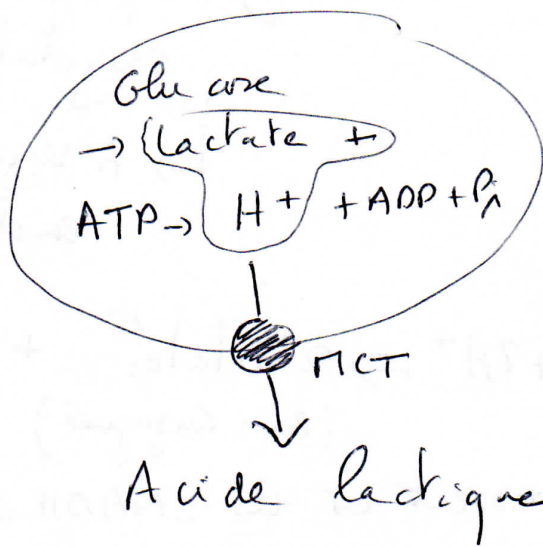 Glucose
→ {Lactate +
ATP → H+ + ADP + Pi
MCT
Acide lactique